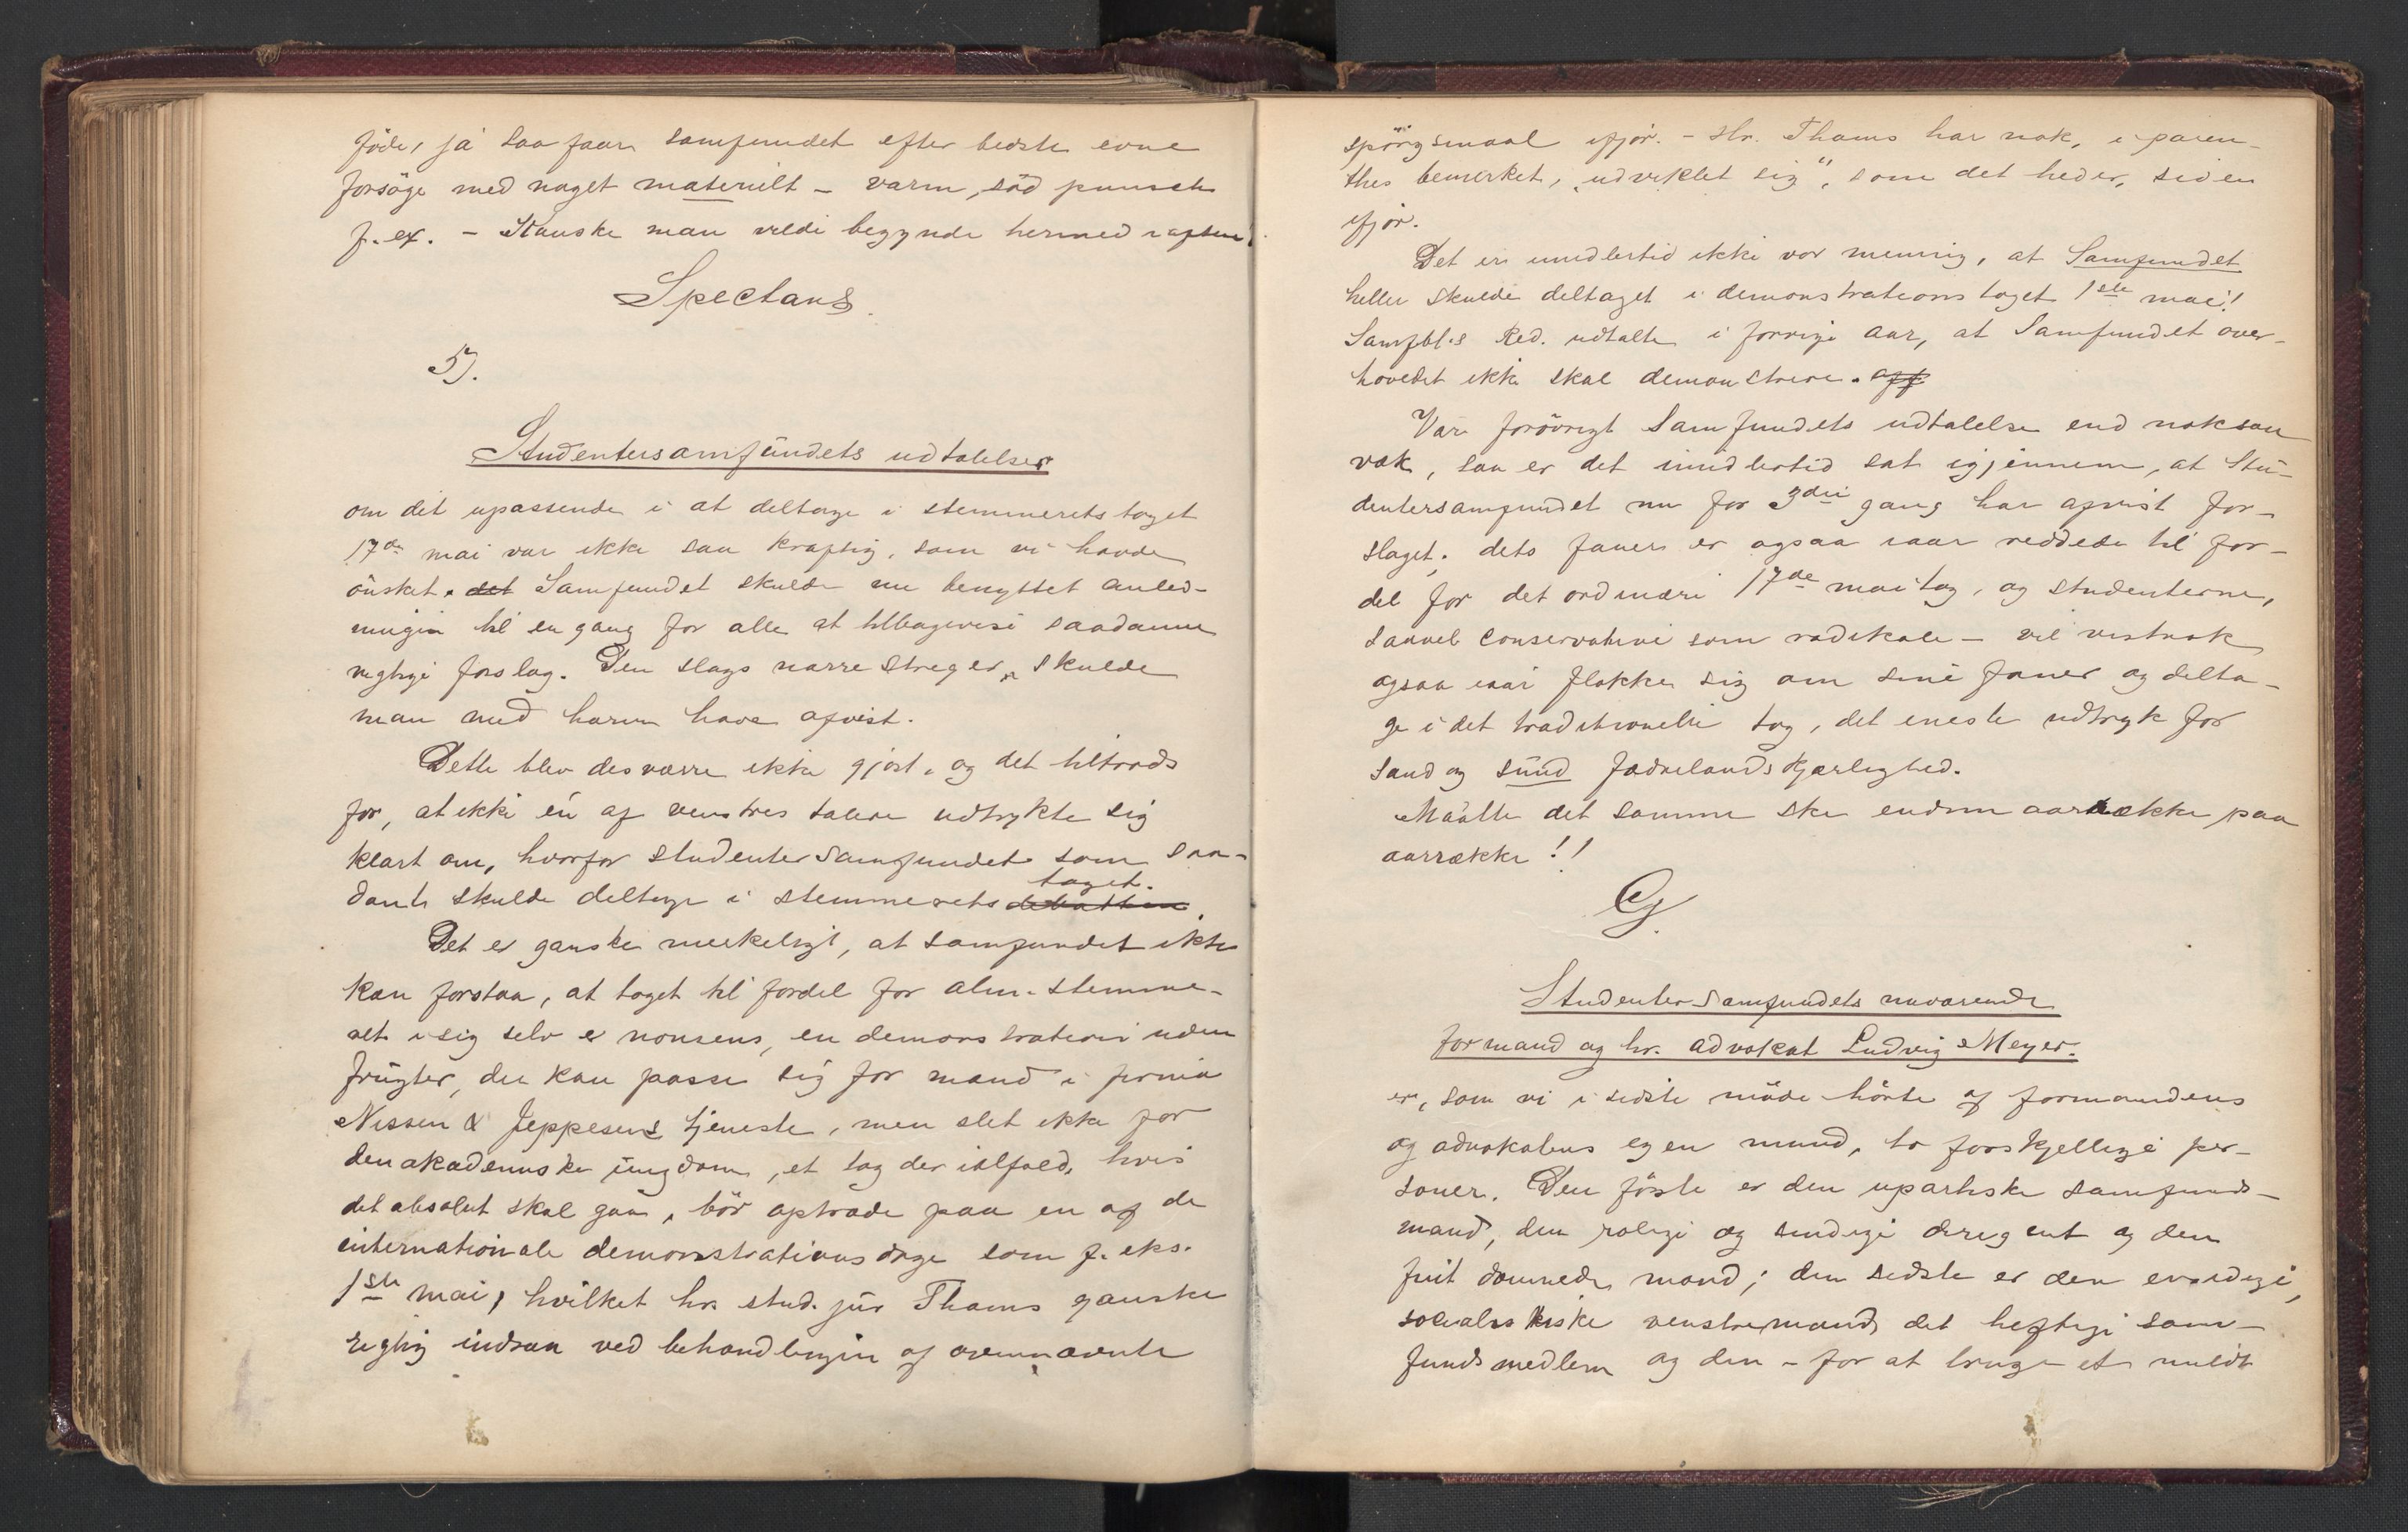 föde, ja saa faar samfundet efter bedste evne
forsöge med noget materielt - varm, söd punsch
f. ex. - Kanske man vilde begynde hermed iaften!
Spectans.
5).
Studentersamfundets udtalelser
om det upassende i at deltage i stemmeretstoget
17de mai var ikke saa kraftig, som vi havde
önsket. det Samfundet skulde nu benyttet anled-
ningen til en gang for alle at tilbagevise saadanne
forslag. Den slags narrestreger, skulde
man med harm have afvist.
Dette blev desværre ikke gjort, og det tiltrods
for, at ikke én af venstres talere udtrykte sig
klart om, hvorfor studentersamfundet som saa-
dant skulde deltage i stemmerets debatten toget.
Det er ganske merkeligt, at samfundet ikke
kan forstaa, at toget til fordel for alm. stemme-
ret i sig selv er nonsens, en demonstration uden
frugter, der kan passe sig for mænd i firma
Nissen & Jeppesens tjeneste, men slet ikke for
den akademiske ungdom, et tog der ialfald, hvis
det absolut skal gaa, bör optræde paa en af de
internationale demonstrationsdage som f. eks.
1ste mai, hvilket hr. stud. jur Thams ganske
rigtig indsaa ved behandlingen af ovennævnte
spörgsmaal ifjor. - Hr. Thams har nok, i paren-
thes bemerket, "udviklet sig", som det heder, siden
ifjor.
Det er imidlertid ikke vor mening, at Samfundet
heller skulde deltaget i demonstrationstoget 1ste mai!
Samfbl.s Red. udtalte i forrige aar, at Samfundet over-
hovedet ikke skal demonstrere.
Var forövrigt Samfundets udtalelse end noksaa
vak, saa er det imidlertid sat igjennem, at Stu-
dentersamfundet nu for 3die gang har afvist for-
slaget; dets faner er ogsaa iaar reddede til for-
del for det ordinære 17de maitog, og studenterne,
saavel conservative som radikale - vil vistnok
ogsaa iaar flokke sig om sine faner og delta-
ge i det traditionelle tog, det eneste udtryk for
sand og sund fædrelandskjærlighed.
Maatte det samme ske endnu aarrække paa
aarrække!!
Cj.
Studentersamfundets nuværende
formand og hr. advokat Ludvig Meyer.
er, som vi i sidste möde hörte af formandens
og advokatens egen mund, to forskjellige per-
soner. Den förste er den upartiske samfunds-
mand, den rolige og sindige dirigent og den
fint dannede mand; den sidste er den ivrige,
socialistiske venstremand, det heftige sam-
fundsmedlem og den - for at bruge et mildt